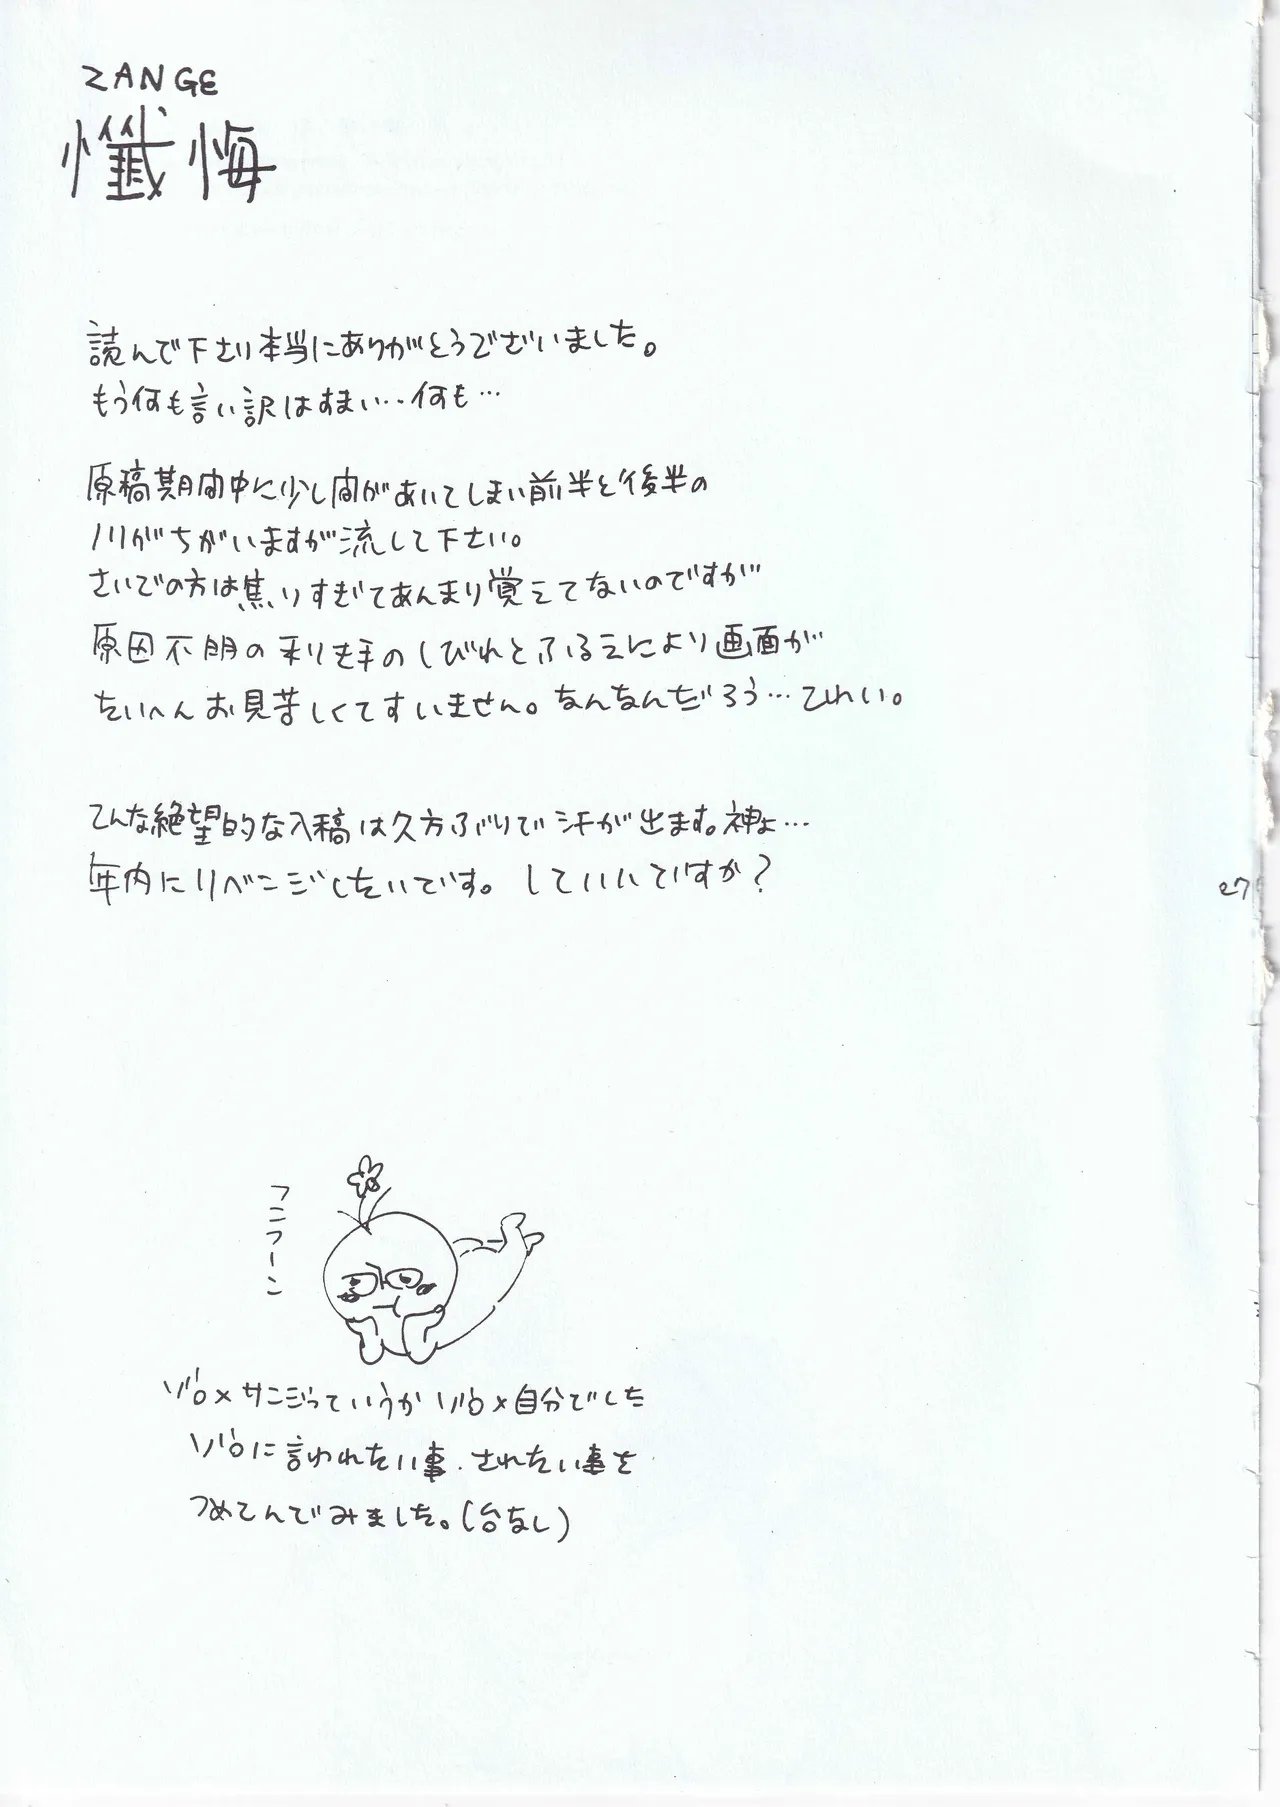 ZANGE
懺悔
読んで下さり本当にありがとうございました。
もう何も言い訳はすまい…何も…
原稿期間中に少し間があいてしまい前半と後半の
ノリがちがいますが流して下さい。
さいごの方は焦りすぎてあんまり覚えてないのですが
原因不明の利き手のしびれとふるえにより画面が
たいへんお見苦しくてすいません。なんなんだろう…ひれい。
こんな絶望的な入稿は久方ぶりで汗が出ます。神よ…
年内にリベンジしたいです。していいですか?
27
フンフーン
ゾロ×サンジっていうかゾロ×自分でした
ゾロに言われたい事.されたい事を
つめこんでみました。(台なし)